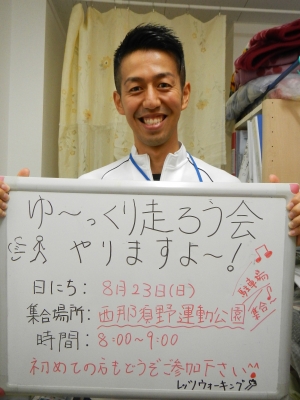 ゆ〜っくり走ろう会
やりますよ〜!
日にち: 8月23日(日)
集合場所: 西那須野運動公園
駐車場
集合
時間: 8:00〜9:00
初めての方もどうぞご参加下さい
レヅノウォーキング